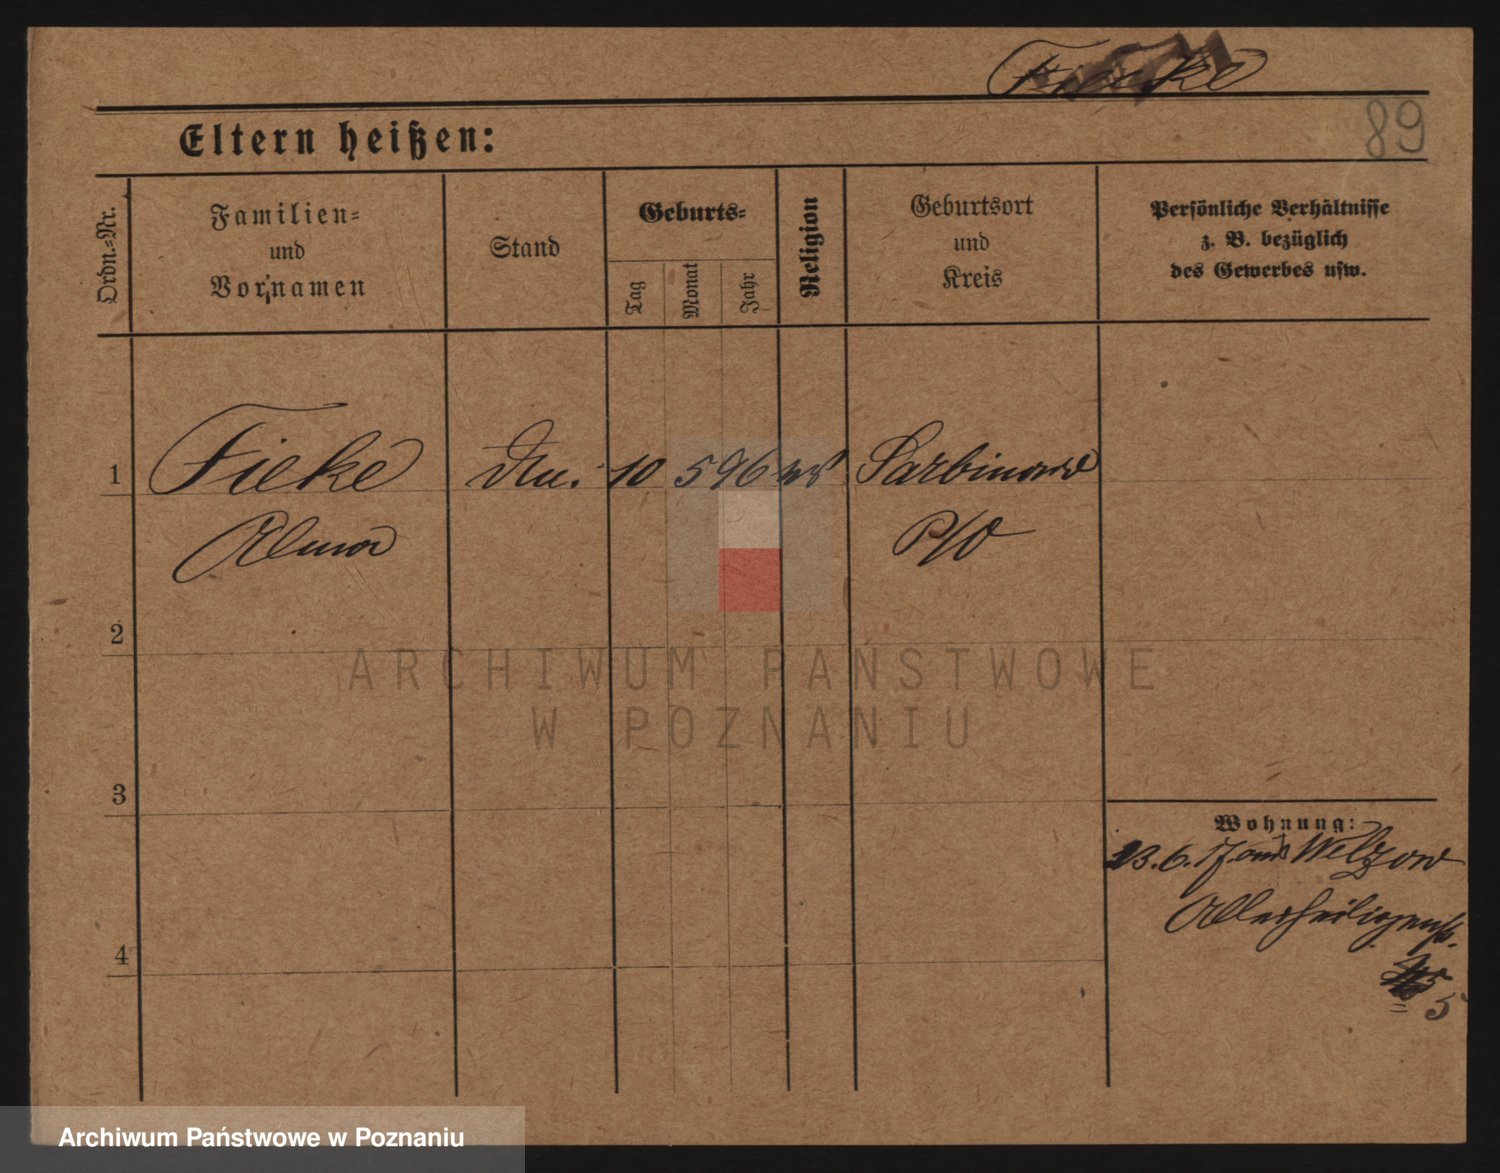 Fieke
89
Eltern heißen:
Ordn.-Nr.
Familien-
und
Vornamen
Stand
Geburts-
Tag
Monat
Jahr
Religion
Geburtsort
und
Kreis
Persönliche Verhältnisse
z. B. bezüglich
des Gewerbes usw.
1
Fieke
10 5 96
Sarbinowo
Alma
2
3
Wohnung:
23.6.17 aus Welzow
Allerheiligenstr.
4
5
ARCHIWUM PAŃSTWOWE
W POZNANIU
Archiwum Państwowe w Poznaniu